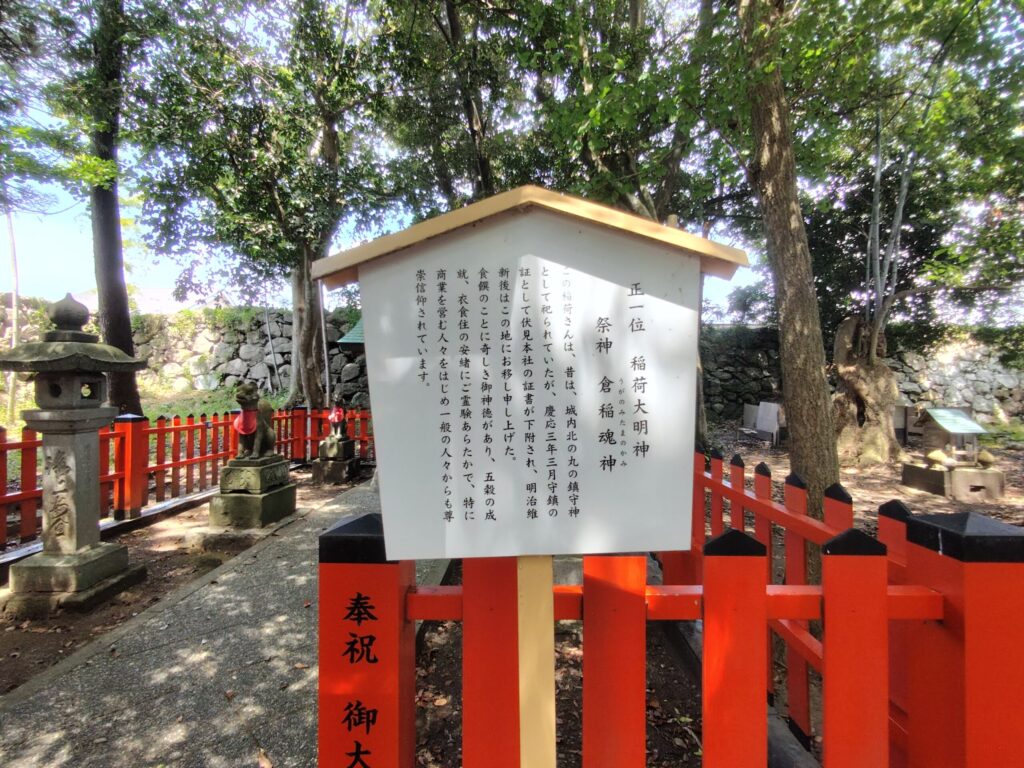 正一位　稲荷大明神
祭神　倉稲魂神
うがのみたまのかみ
この稲荷さんは、昔は、城内北の丸の鎮守神
として祀られていたが、慶応三年三月守鎮の
証として伏見本社の証書が下附され、明治維
新後はこの地にお移し申し上げた。
食饌のことに奇しき御神徳があり、五穀の成
就、衣食住の安緒にご霊験あらたかで、特に
商業を営む人々をはじめ一般の人々からも尊
崇信仰されています。
奉祝　御大